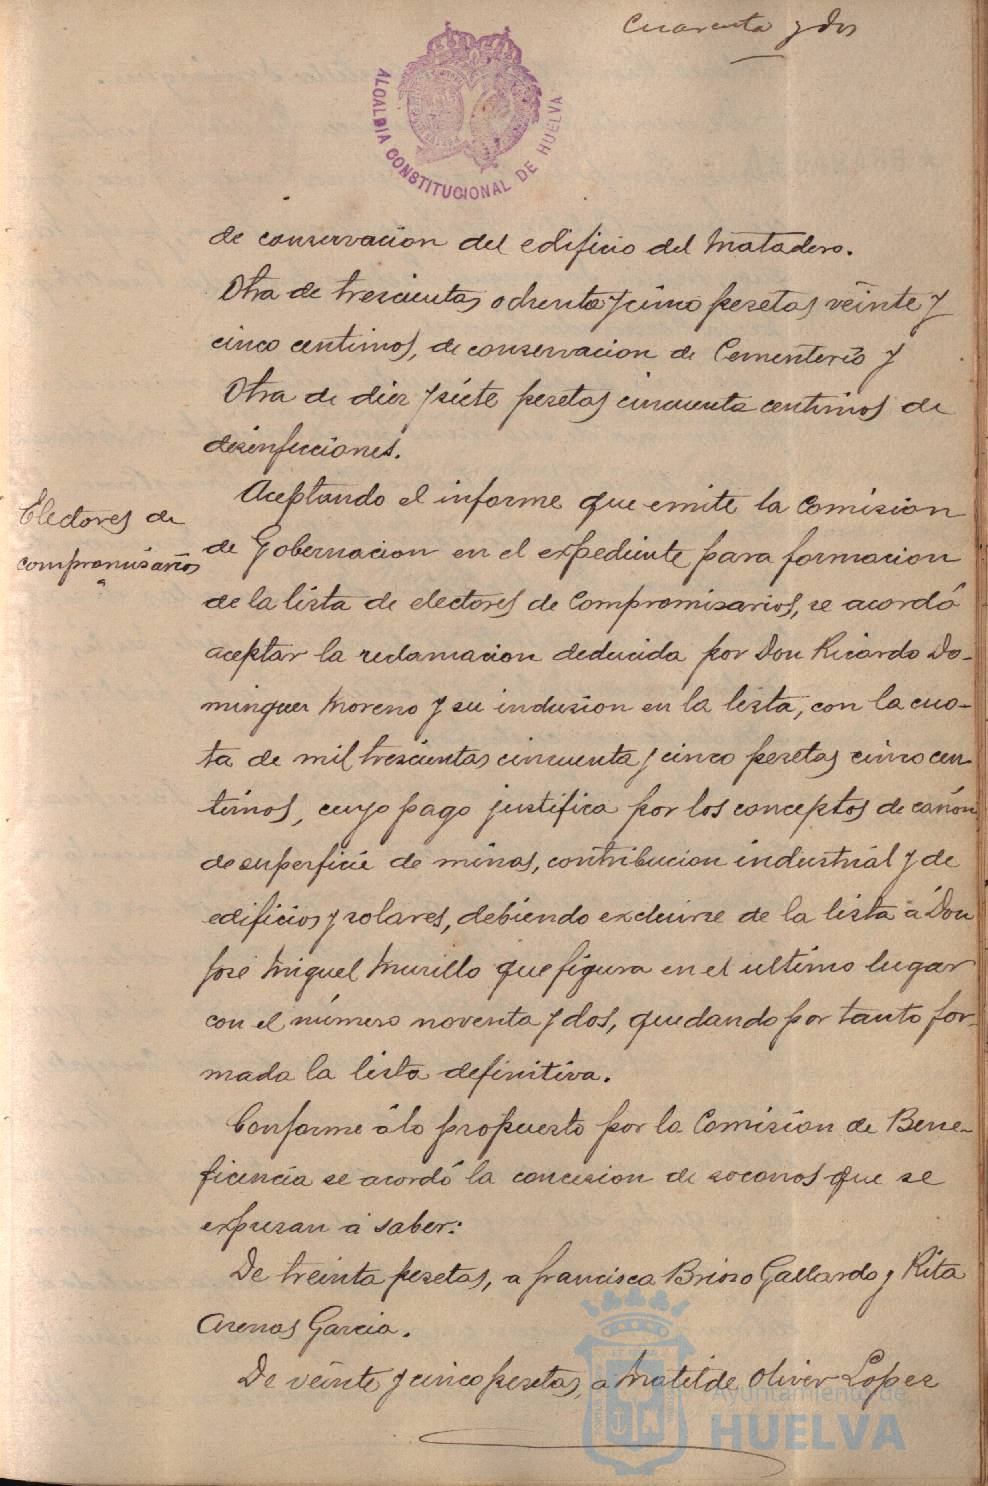 Cuarenta y dos
ALCALDIA CONSTITUCIONAL DE HUELVA
de conservacion del edificio del Matadero.
Otra de trescientas ochenta y cinco pesetas veinte y
cinco centimos, de conservacion de Cementerio y
Otra de diez y siete pesetas cincuenta centimos de
desinfecciones.
Electores de
compromisarios
Aceptando el informe que emite la Comision
de Gobernacion en el expediente para formacion
de la lista de electores de Compromisarios, se acordó
aceptar la reclamacion deducida por Don Ricardo Do-
minguez Moreno y su inclusion en la lista, con la cuo-
ta de mil trescientas cincuenta y cinco pesetas cinco cen
timos, cuyo pago justifica por los conceptos de canon
de superficie de minas, contribucion industrial y de
edificios y solares, debiendo excluirse de la lista á Don
José Miguel Murillo que figura en el ultimo lugar
con el número noventa y dos, quedando por tanto for-
mada la lista definitiva.
Conforme á lo propuesto por la Comision de Bene-
ficencia se acordó la concesion de socorros que se
expresan á saber:
De treinta pesetas, a Francisca Brioso Gallardo y Rita
Arenas Garcia.
De veinte y cinco pesetas, a Matilde Oliver Lopez
Ayuntamiento de
HUELVA